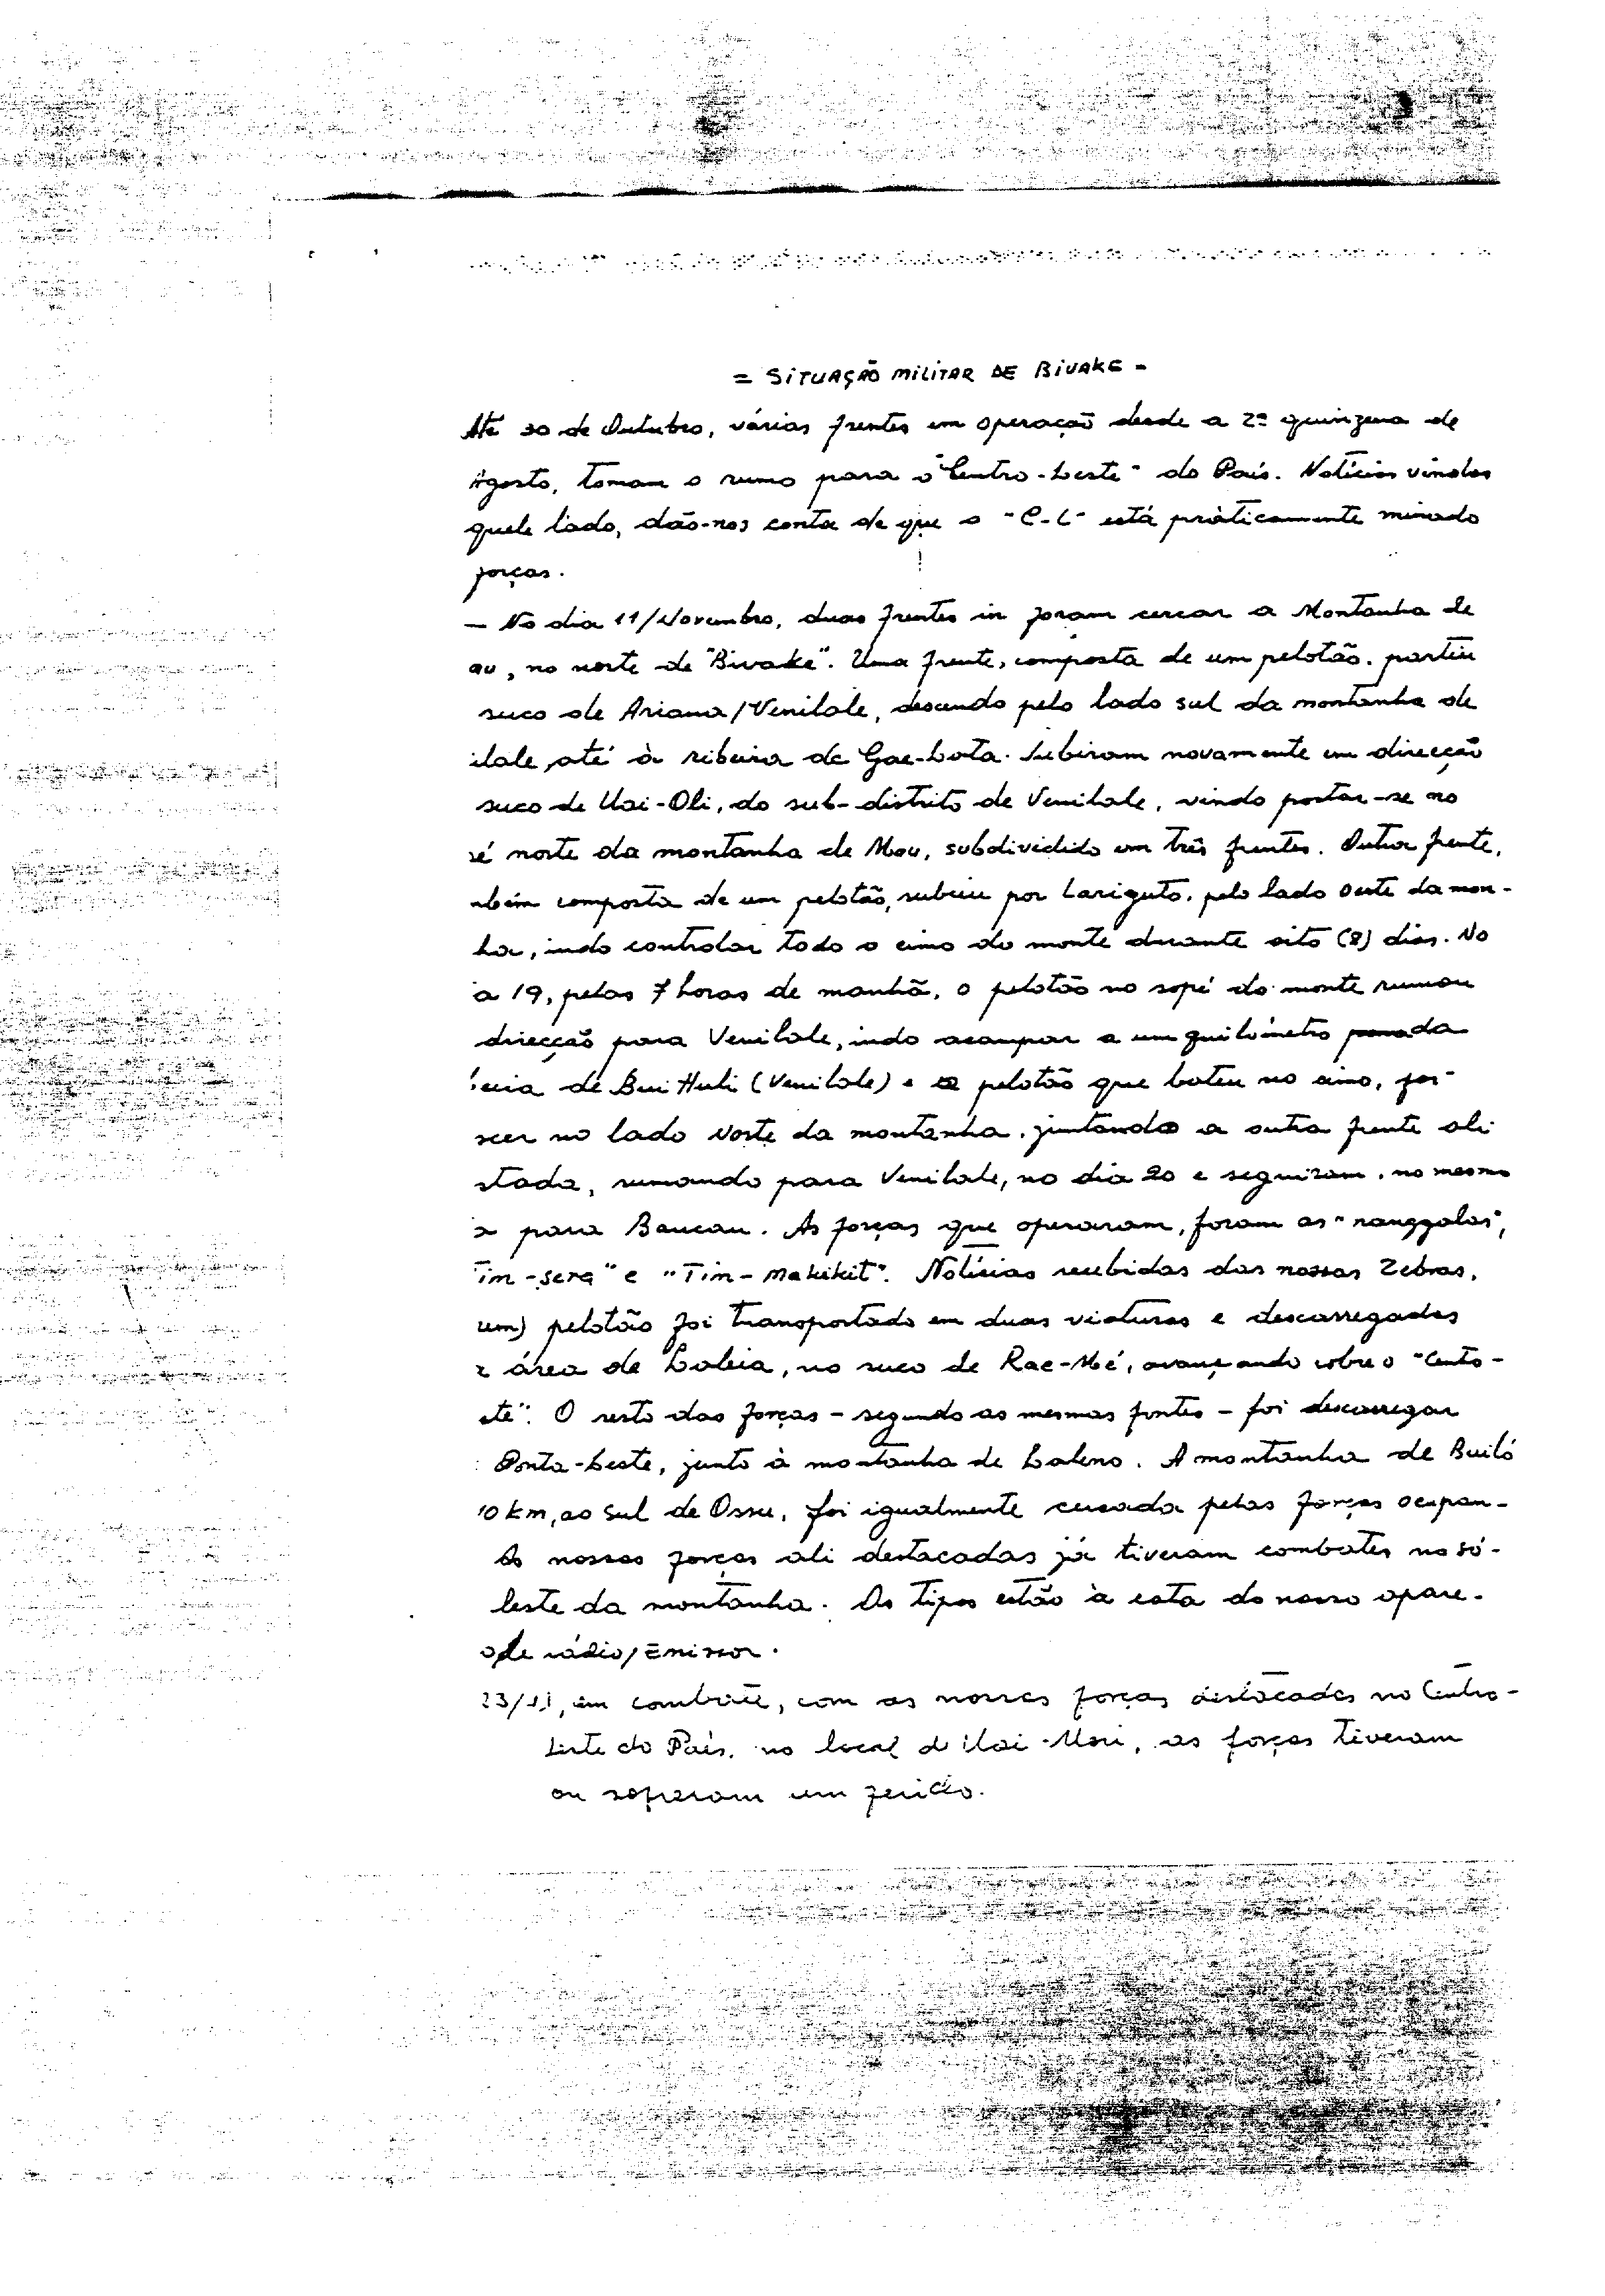 = SITUAÇÃO MILITAR DE BIVAKE =
Até 30 de Outubro, várias frentes em operação desde a 2ª quinzena de
Agosto, tomam o rumo para o "Centro-Leste" do País. Notícias vindas
quele lado, dão-nos conta de que o "C-L" está práticamente minado
forças.
— No dia 11/Novembro, duas frentes in foram cercar a Montanha de
au, no norte de "Bivake". Uma frente, composta de um pelotão, partiu
suco de Ariana/Venilale, descendo pelo lado sul da montanha de
ilale, até à ribeira de Gae-Lota. Subiram novamente em direcção
suco de Uai-Oli, do sub-distrito de Venilale, vindo postar-se no
pé norte da montanha de Mau, subdividido em três frentes. Outra frente,
mbém composta de um pelotão, subiu por Lariguto, pelo lado oeste da mon-
ha, indo controlar todo o cimo do monte durante oito (8) dias. No
a 19, pelas 7 horas de manhã, o pelotão no sopé do monte rumou
direcção para Venilale, indo acampar a um quilómetro da
de Bui Huli (Venilale) e o pelotão que bateu no cimo, foi
scer no lado Norte da montanha, juntando a outra frente ali
stada, rumando para Venilale, no dia 20 e seguiram, no mesmo
a para Baucau. As forças que operaram, foram as "nanggalas",
Tim-sera" e "Tim-Makikit". Notícias recebidas das nossas Zebras,
um) pelotão foi transportado em duas viaturas e descarregados
área de Laleia, no suco de Rae-Mé, avançando sobre o "Cento-
ste". O resto das forças - segundo as mesmas fontes - foi descarregar
Ponta-Leste, junto à montanha de Laleno. A montanha de Builó
10 km, ao sul de Ossu, foi igualmente cercada pelas forças ocupan-
As nossas forças ali destacadas já tiveram combates no só-
leste da montanha. Os tipos estão à cata do nosso apare-
o de rádio/Emissor.
23/11, em combate, com as nossas forças deslocadas no Centro-
Leste do País, no local d Uai-Mori, as forças tiveram
ou sofreram um ferido.